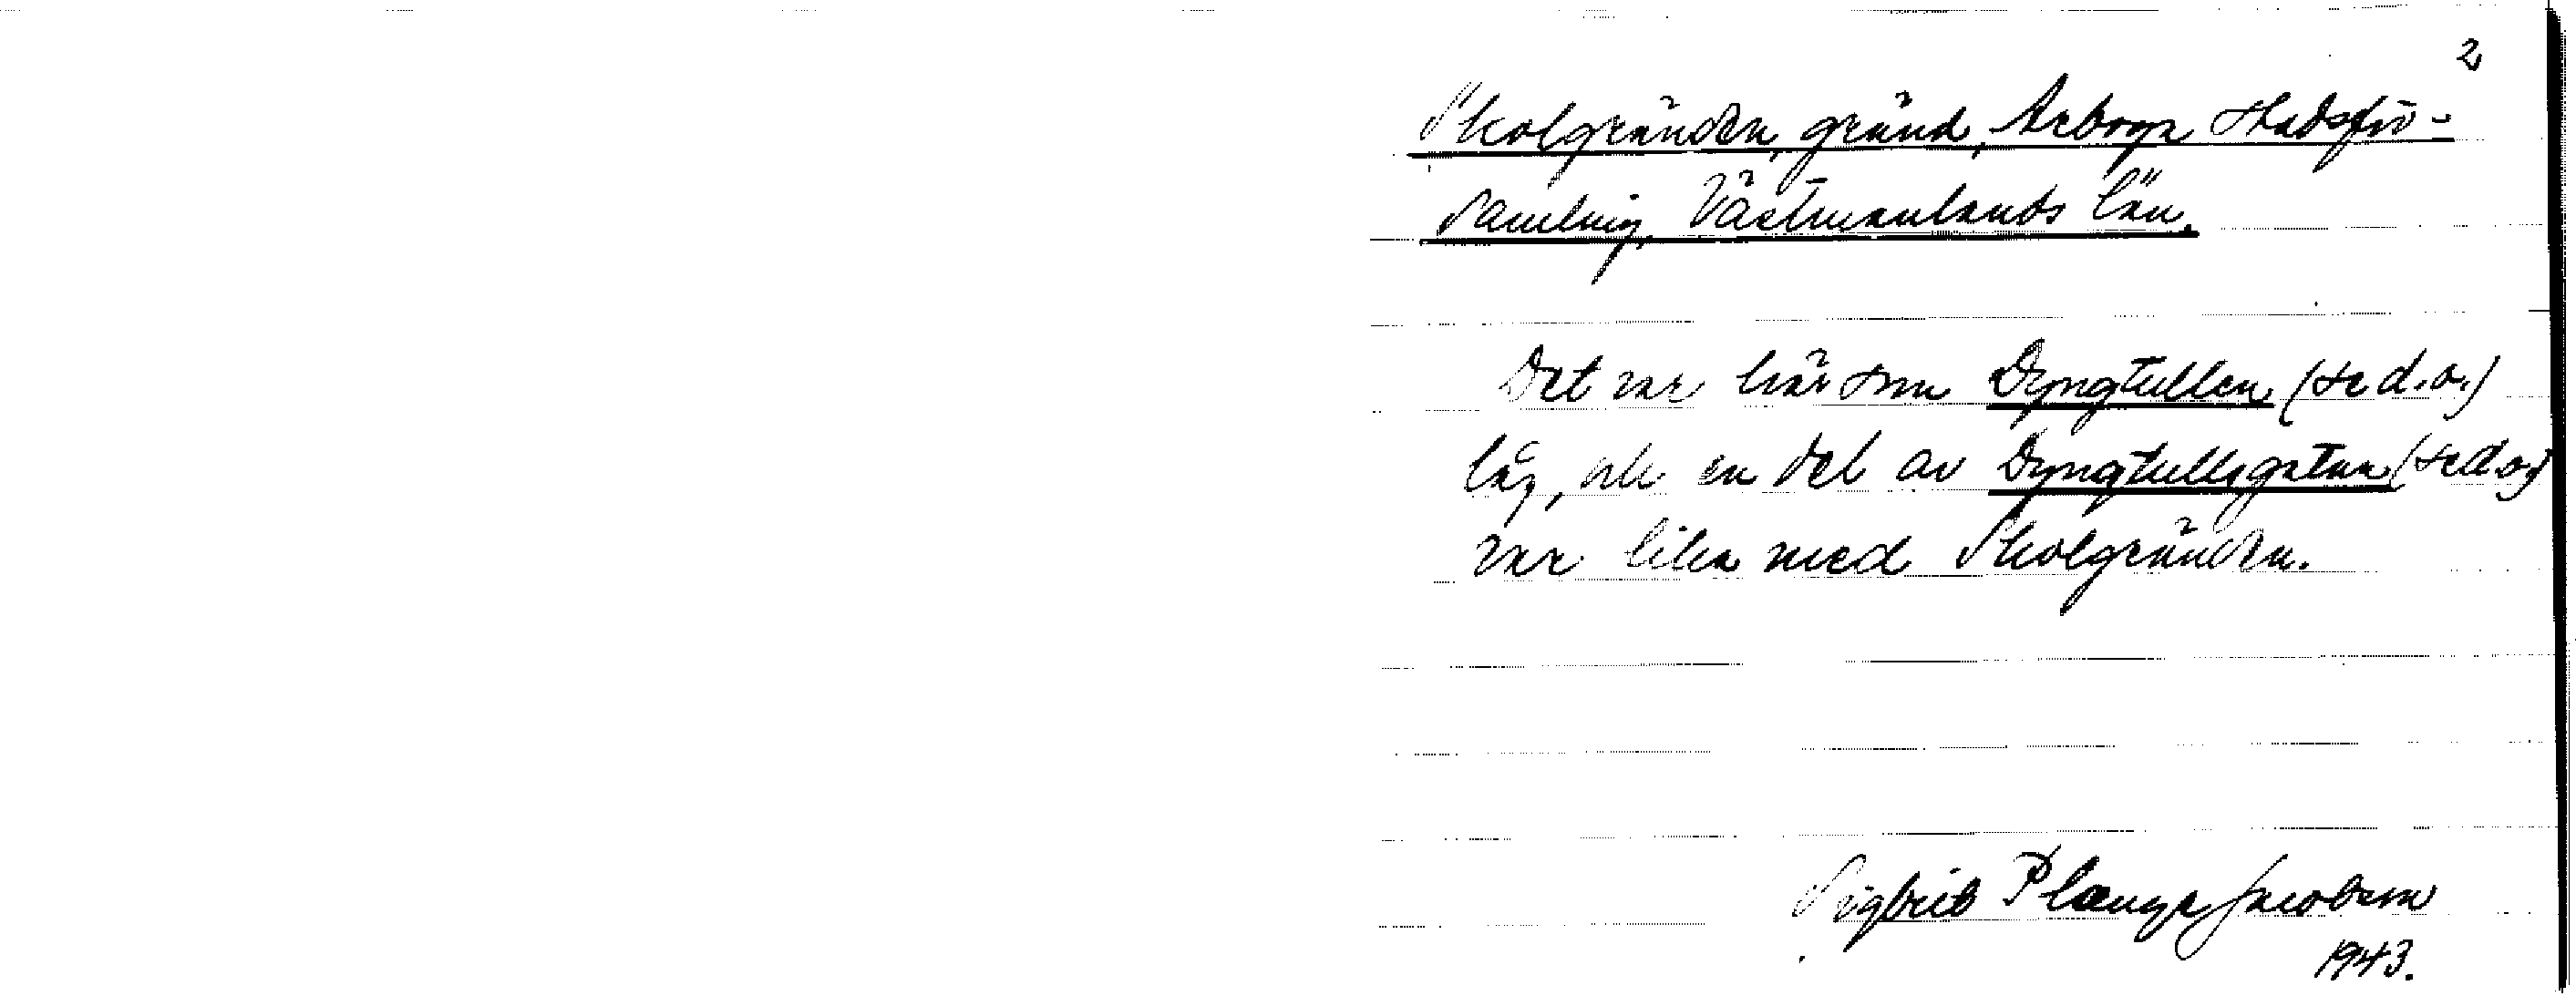 2
Skolgränden, gränd, Arboga stadsför-
samling, Västmanlands län.
Det var här som Dyngtullen (se d.o.)
låg, och en del av Dyngtullsgatan (se d.o.)
var lika med Skolgränden.
Sigbrit Plænge Jacobson
1943.